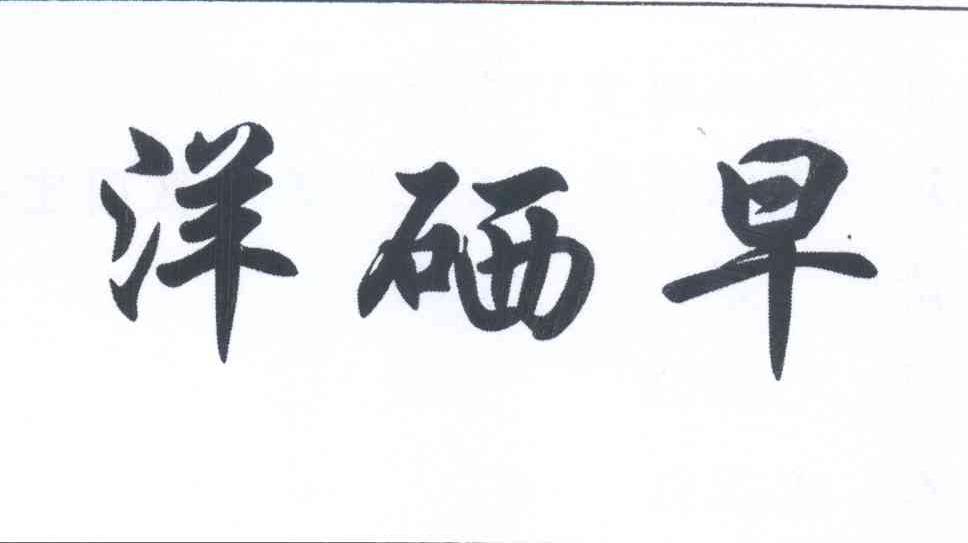 洋硒早